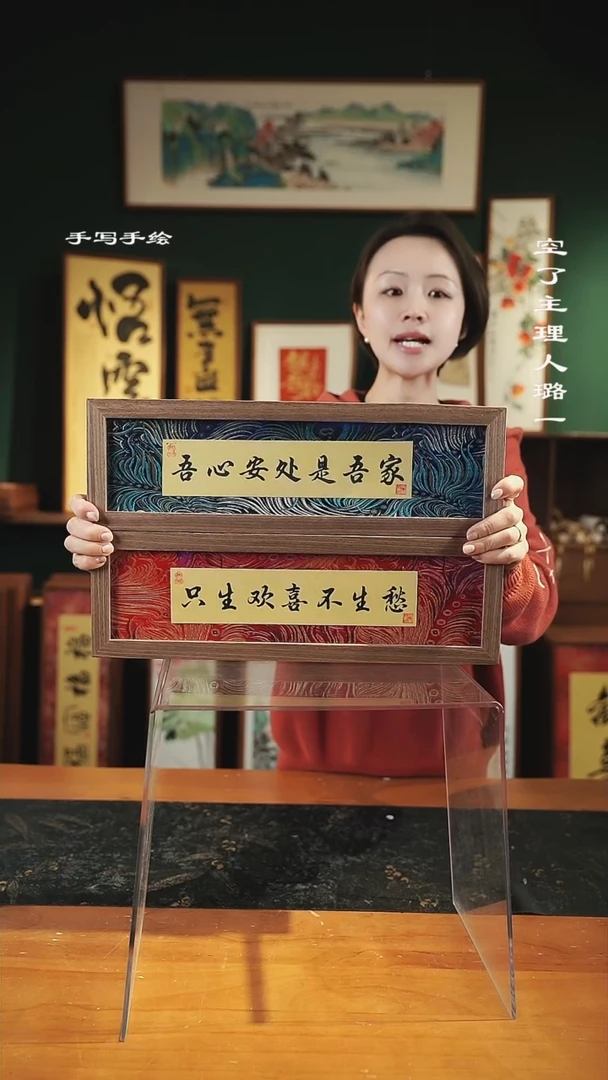 手写手绘
空了主理人璐一
悟空
吾心安处是吾家
只生欢喜不生愁